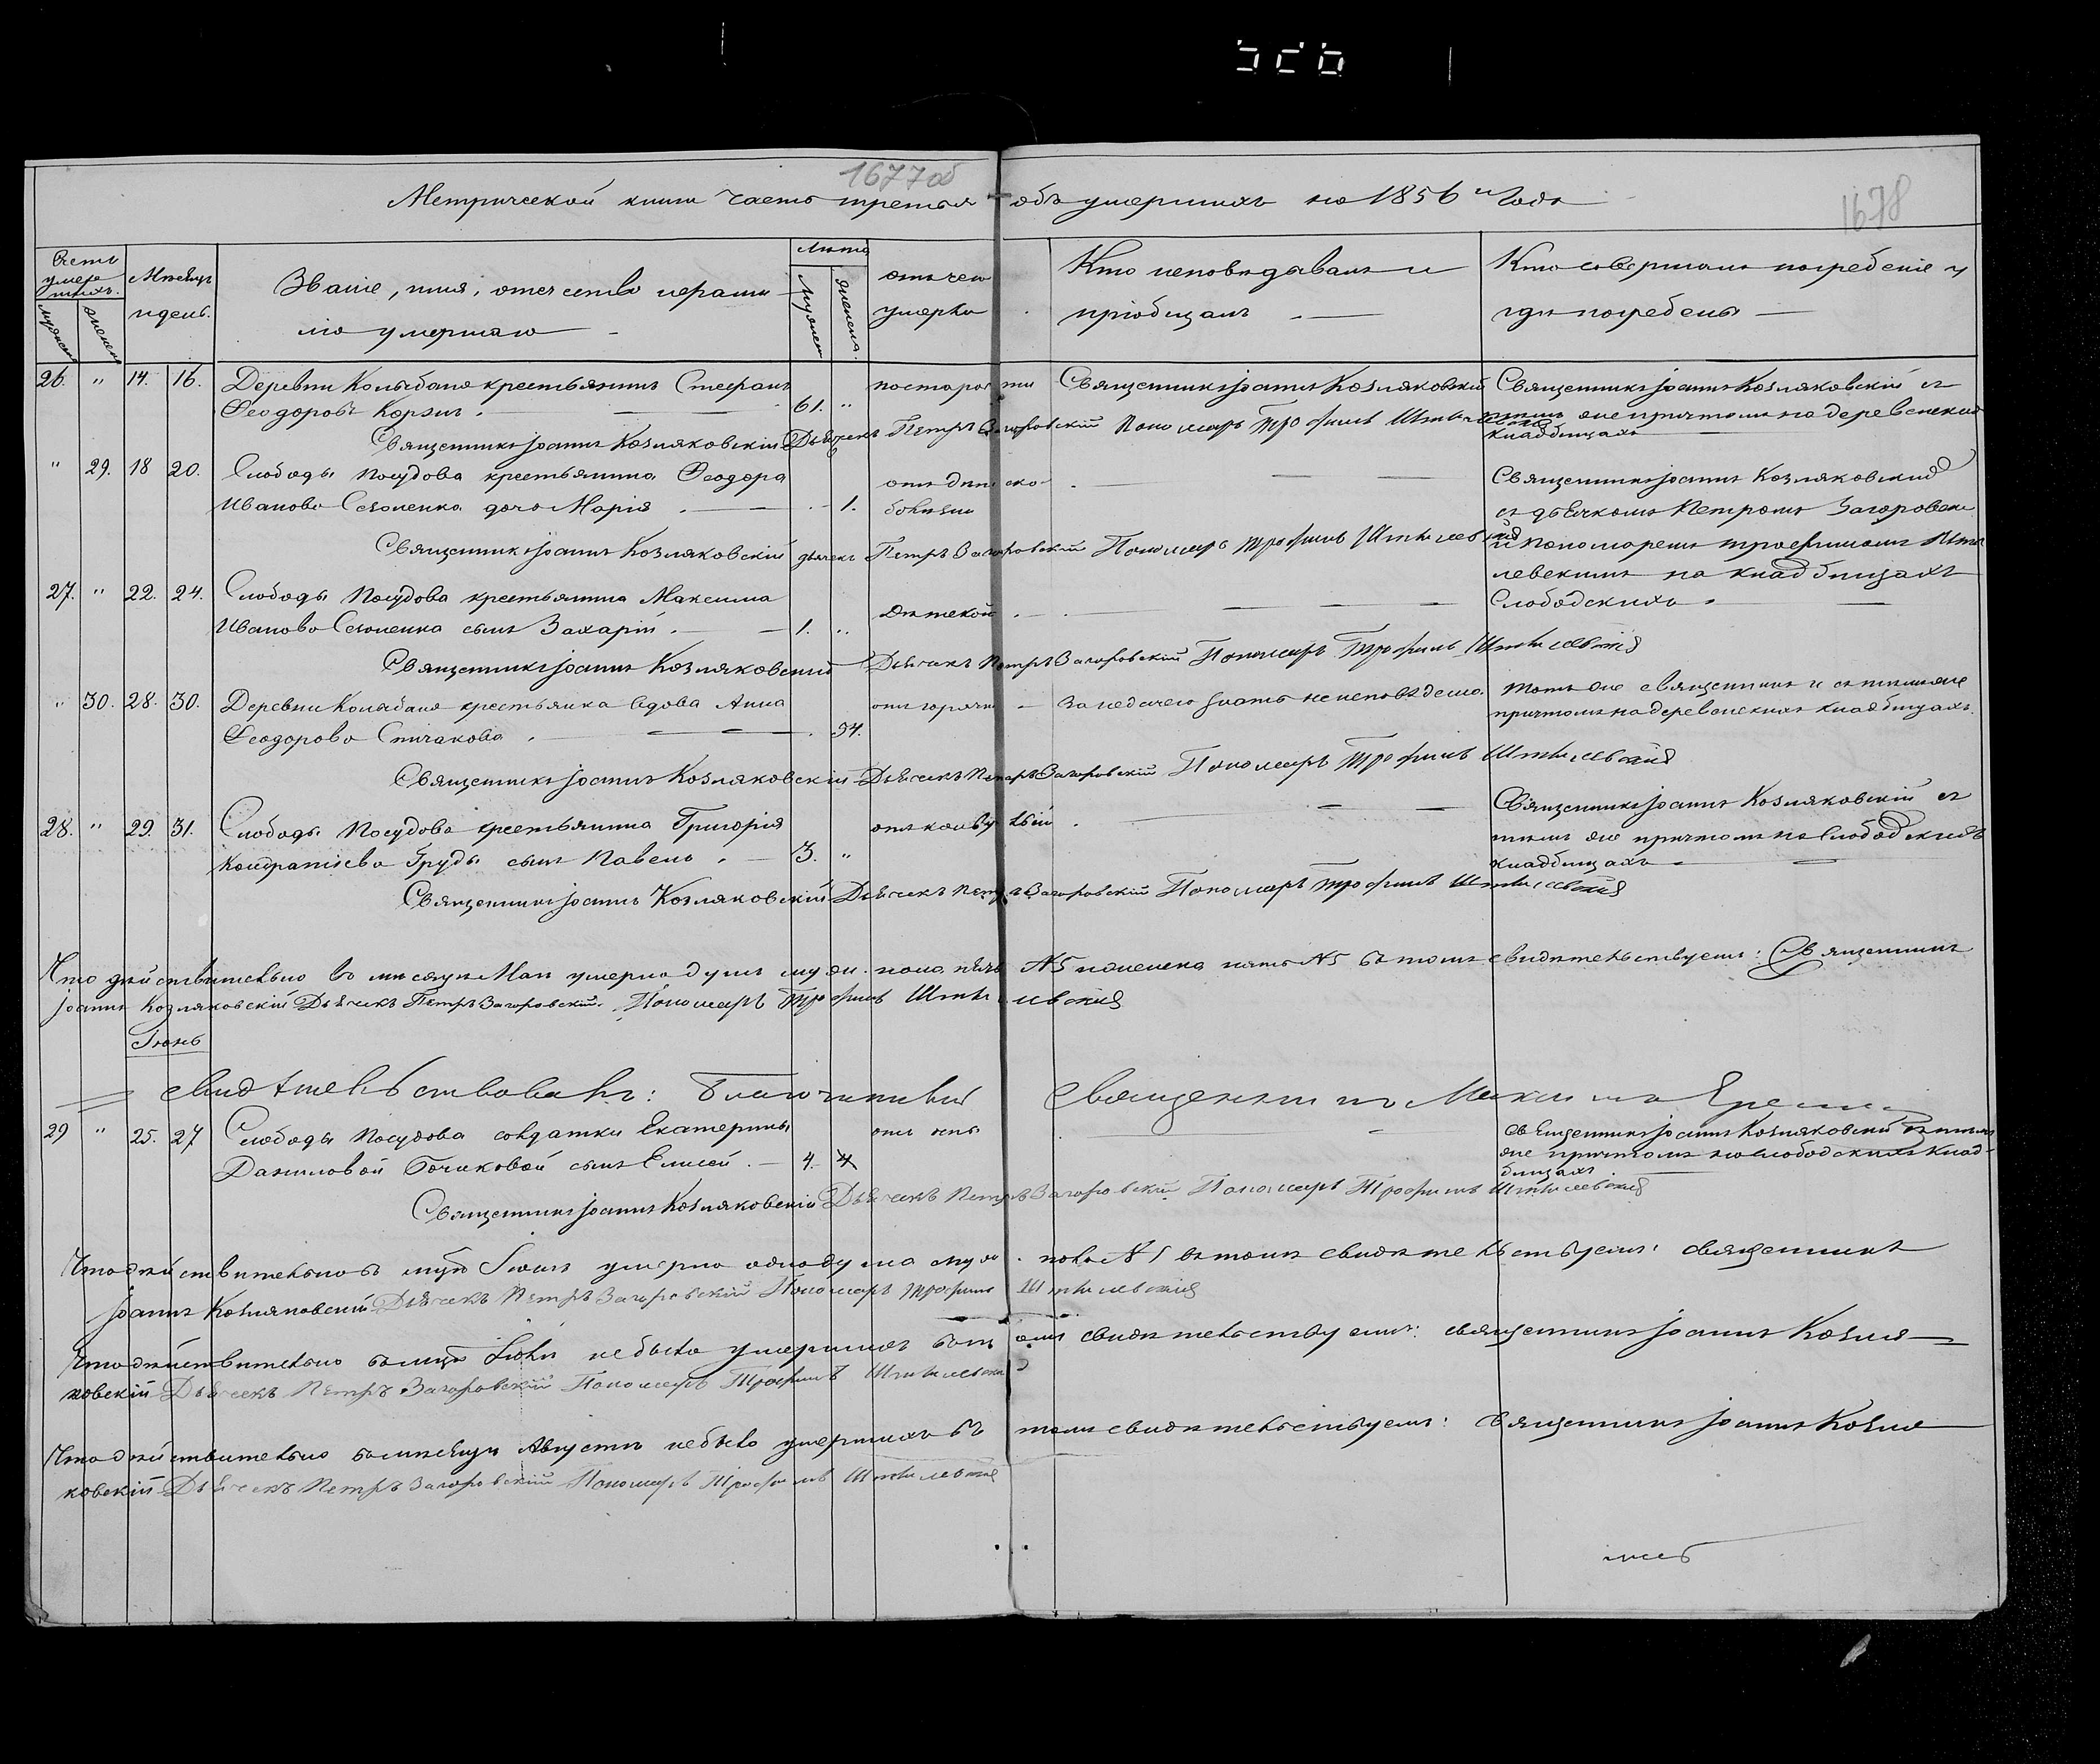 1677об
Метрической книги часть третья объ умершихъ на 1856й Годъ
1678
Счетъ умершихъ.
Мѣсяцъ и день.
Званіе, имя, отечество и фамилія умершаго
Лѣта
отъ чего умерли
Кто исповѣдавалъ и пріобщалъ
Кто совершалъ погребеніе и гдѣ погребены
мужеска
женска
мужеска
женска.
26. " 14. 16. Деревни Колыбани крестьянинъ Стефанъ
Феодоровъ Корзъ. 61. "
по старости
Священникъ Іоаннъ Козляковскій
Священникъ Іоаннъ Козляковскій съ
тѣмъ же причтомъ на деревенскихъ
кладбищахъ
Священникъ Іоаннъ Козляковскій Дьячекъ Петръ Загоровскій Пономарь Трофимъ
" 29. 18 20. Слободы Посудова крестьянина Феодора
Иванова дочь Марія 1.
отъ дѣтской
болѣзни
Священникъ Іоаннъ Козляковскій
съ дьячкомъ Петромъ Загоровским
и пономаремъ Трофимомъ
левскимъ на кладбищахъ
Слободскихъ
Священникъ Іоаннъ Козляковскій дьячекъ Петръ Загоровскій Пономарь Трофимъ
27. " 22. 24. Слободы Посудова крестьянина Максима
Иванова сынъ Захарій. 1. "
Дѣтской
Священникъ Іоаннъ Козляковский Дьячекъ Петръ Загоровскій Пономарь Трофимъ
" 30. 28. 30. Деревни Колыбани крестьянка вдова Анна
Феодорова Спичакова. 54.
отъ горячк
За недачею знать не исповѣдана.
тотъ же священникъ и съ тѣмъ же
причтомъ на деревенскихъ кладбищахъ.
Священникъ Іоаннъ Козляковскій Дьячекъ Петръ Загоровскій Пономарь Трофимъ
28. " 29. 31. Слободы Посудова крестьянина Григорія
Кондратіева Груды сынъ Павелъ. 3. "
отъ конвульсій
Священникъ Іоаннъ Козляковскій съ
тѣмъ же причтомъ на Слободскихъ
кладбищахъ
Священникъ Іоаннъ Козляковскій Дьячекъ Петръ Загоровскій Пономарь Трофимъ
Что дѣйствительно въ мѣсяцѣ Маѣ умерло душъ муж. пола пять №5 и женска пять №5 въ томъ свидѣтельствуемъ: Священникъ
Іоаннъ Козляковскій Дьячекъ Петръ Загоровскій. Пономарь Трофимъ
Іюнь
свидѣтельствовалъ: Благочинный Священникъ
29 " 25. 27 Слободы Посудова солдатки Екатерины
Даниловой сынъ Елисей. 4.
отъ оспы
Священникъ Іоаннъ Козляковскій съ тѣмъ
же причтомъ на слободскихъ клад-
бищахъ
Священникъ Іоаннъ Козляковскій Дьячекъ Петръ Загоровскій Пономарь Трофимъ
Что дѣйствительно въ мцѣ Іюнѣ умерло одна душа муж. пола №1 въ томъ свидѣтельствуемъ: священникъ
Іоаннъ Козляковскій Дьячекъ Петръ Загоровскій Пономарь Трофимъ
Что дѣйствительно въ мцѣ Іюлѣ не было умершихъ въ томъ свидѣтельствуемъ: священникъ Іоаннъ Козля
ковскій Дьячекъ Петръ Загоровскій Пономарь Трофимъ
Что дѣйствительно въ мѣсяцѣ Августѣ не было умершихъ въ томъ свидѣтельствуемъ: Священникъ Іоаннъ Козля
ковскій Дьячекъ Петръ Загоровскій Пономарь Трофимъ